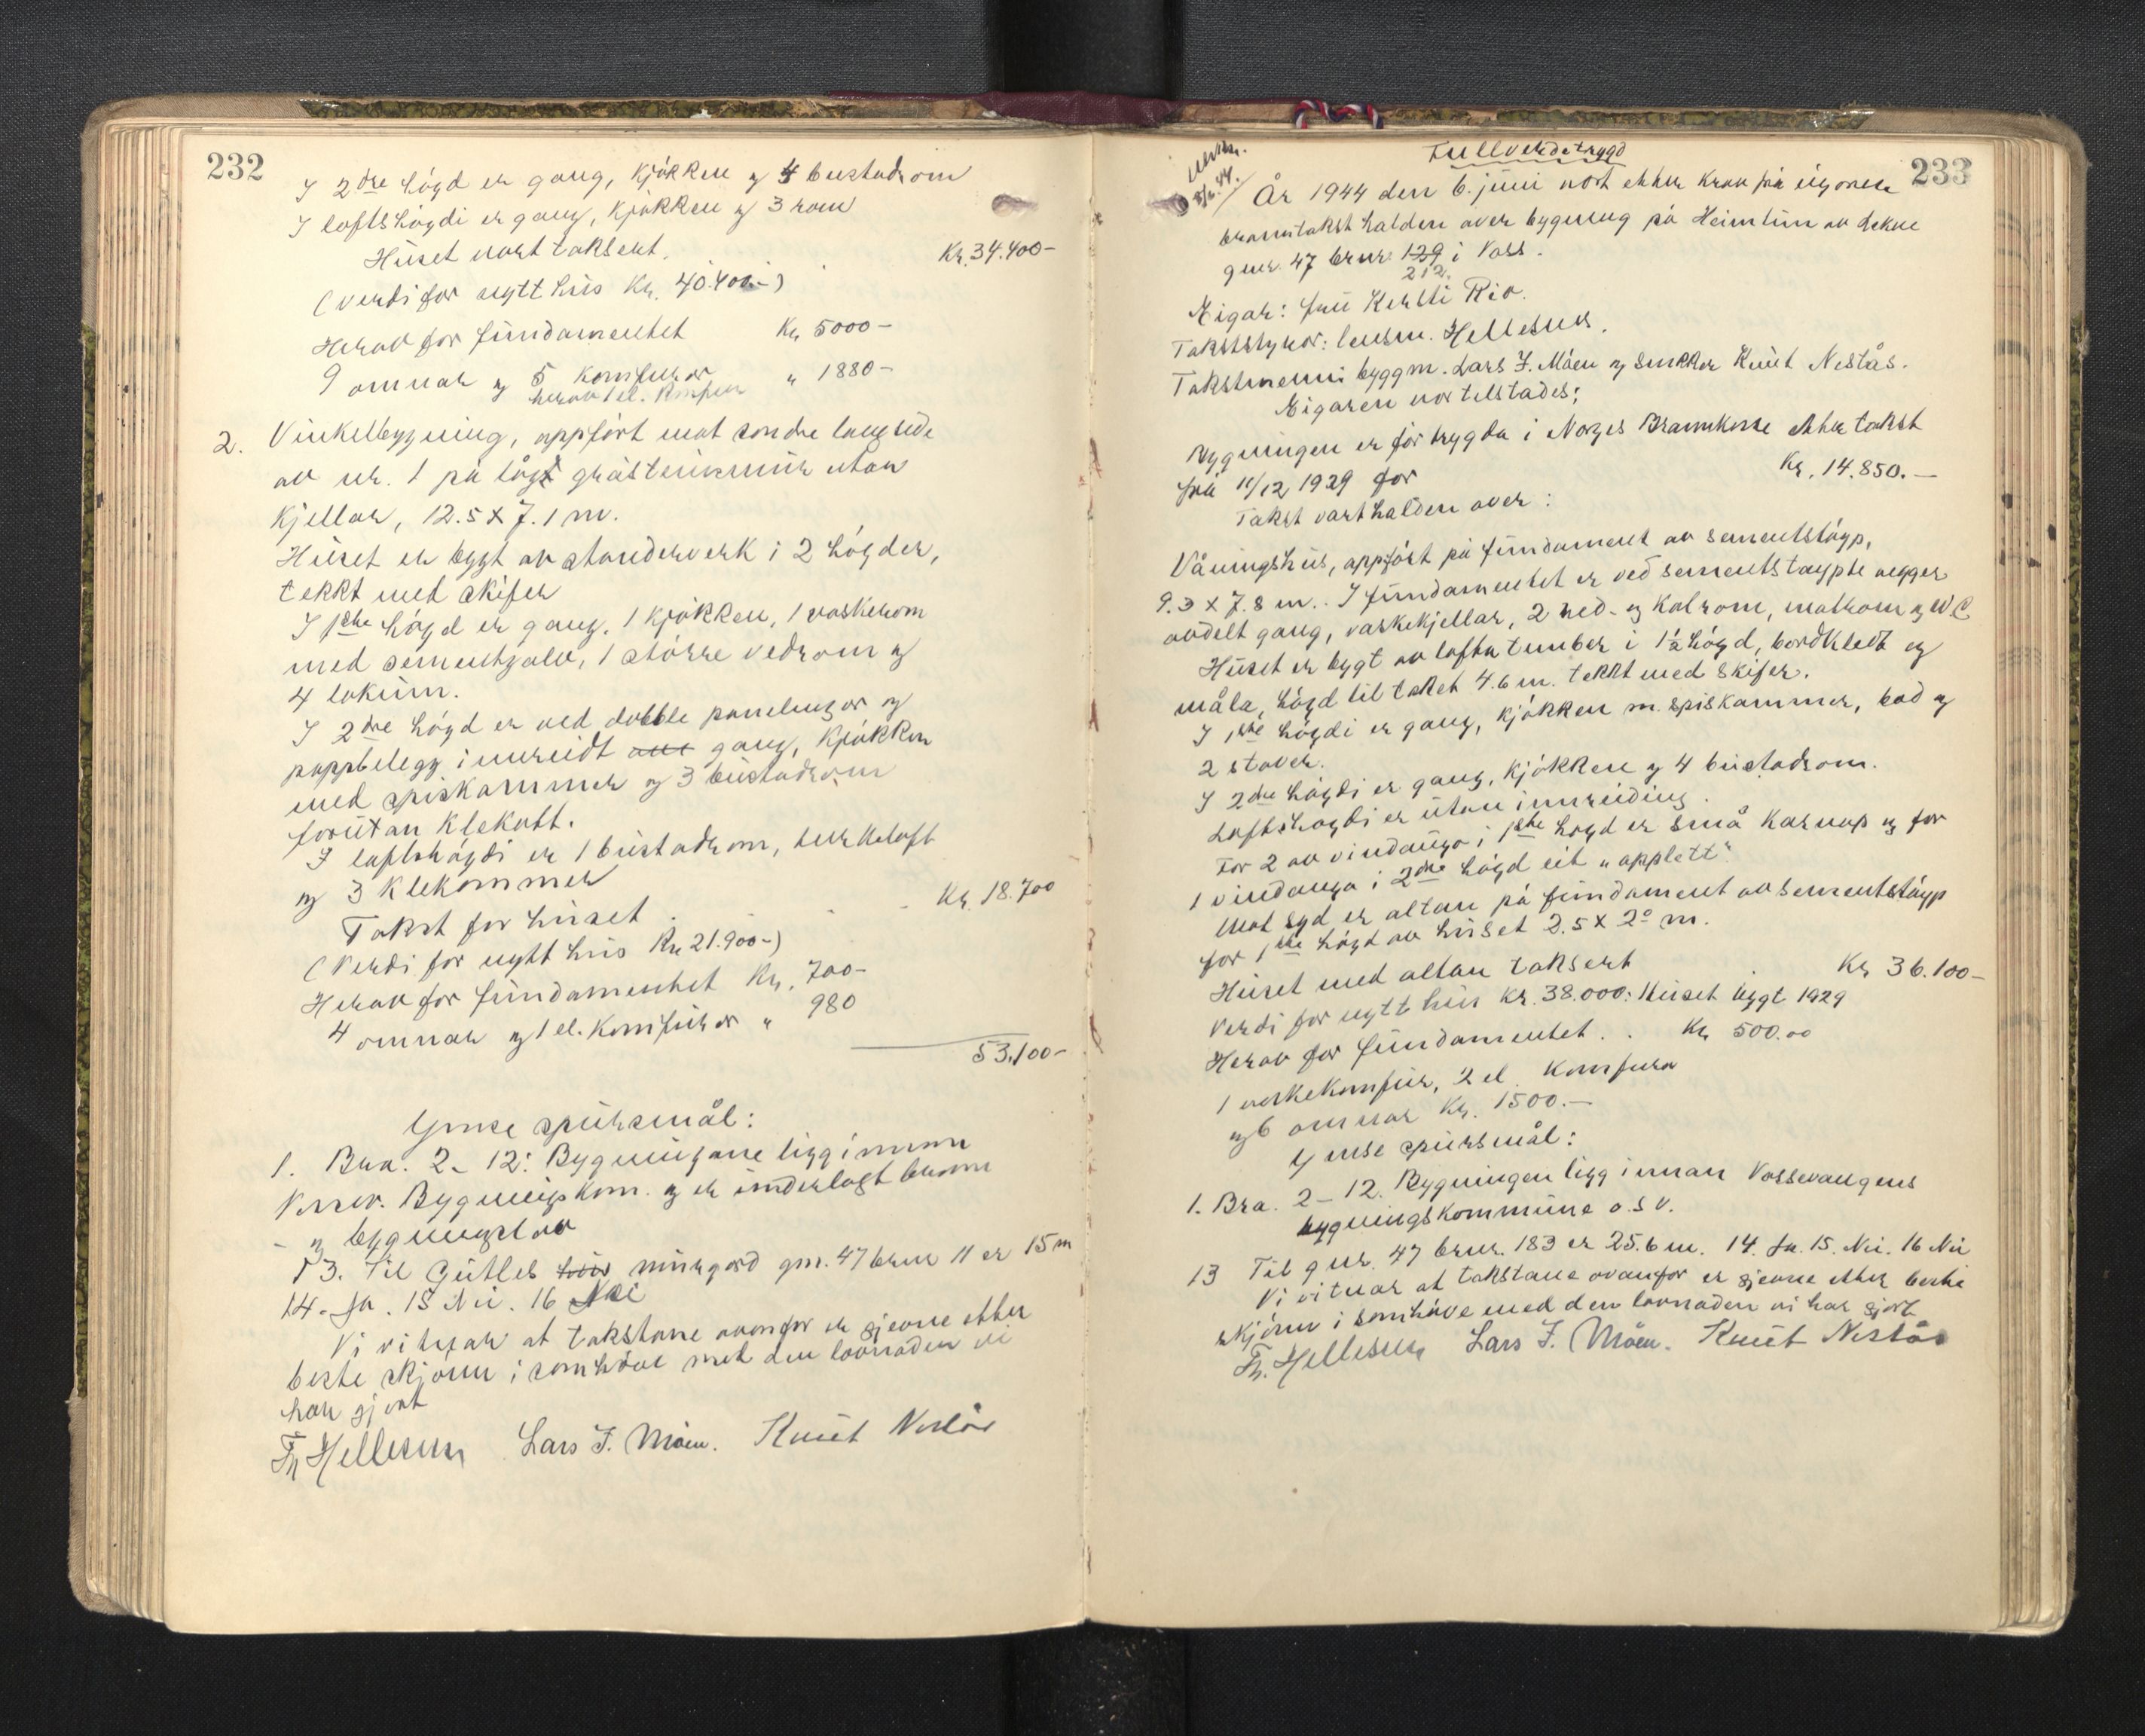 232
I 2dre högd er gang, kjökken og 4 bustadrom
I loftshögdi er gang, kjökken og 3 rom
Huset vart taksert. Kr. 34.400-
(Verdi for nytt hus Kr. 40.400.-)
Herav for fundamentet Kr. 5000-
9 omnar og 5 komfurar " 1880-
herav 1 el. komfur
2. Vinkelbygning, appfört mot söndre langside
av nr. 1 på lågt gråsteinsmur utan
kjellar, 12.5 x 7.1 m.
Huset er bygt av standerverk i 2 högder,
tekkt med skifer
I 1ste högd er gang, 1 kjökken, 1 vaskerom
med sementgolv, 1 större vedrom og
4 lokum.
I 2dre högd er ved dobble panelingar og
pappbelegg innreidt gang, kjökken
med spiskammer og 3 bustadrom
forutan klekott.
I loftshögdi er 1 bustadrom, turkeloft
og 3 klekommer
Takst for huset Kr. 18.700
(Verdi for nytt hus Kr 21.900-)
Herav for fundamentet Kr. 700-
4 omnar og 1 el. komfurar " 980
53.100-
Ymse spursmål:
1. Bra. 2-12: Bygningane ligg innan
Vossev. Bygningskom. og er underlagt brann
- og bygningslov
13. Til Gutles murgard gnr. 47 brnr 11 er 15 m
14. Ja. 15 Nei. 16 Nei
Vi vitnar at takstane ovanfor er gjevne etter
beste skjönn i samhöve med den lovnaden vi
har gjort
Th Hellesnes Lars F. Möen. Knut Nestås
233
Fullverdetrygd
8/6.44.
År 1944 den 6. juni vart etter krav frå eigaren
branntakst halden over bygning på Heimtun av dekne
gnr. 47 brnr. 139 i Voss.
212.
Eigar: fru Kersti Rio.
Takststyrar: lensm. Hellesnes.
Takstmenn: byggm. Lars F. Möen og snikker Knut Nestås.
Eigaren var tilstades:
Bygningen er för trygda i Norges Brannkasse etter takst
frå 11/12 1929 for Kr. 14.850.—
Takst vart halden over:
Våningshus, appfört på fundament av sementstöyp,
9.3 x 7.8 m.. I fundamentet er ved sementstöypte vegger
avdelt gang, vaskekjellar, 2 ved- og kolrom, matrom og W C
Huset er bygt av lafta tömber i 1½ högd, bordkledt og
måla, högd til taket 4.6 m. tekkt med skifer.
I 1ste högdi er gang, kjökken m. spiskammer, bad og
2 stover.
I 2dre högdi er gang, kjökken og 4 bustadrom.
Loftshögdi er utan innreiding.
For 2 av vindauga i 1ste högd er små karnap og for
1 vindauga i 2dre högd eit "applett".
Mot syd er altan på fundament av sementstöyp
for 1ste högd av huset 2.5 x 2.0 m.
Huset med altan taksert Kr 36.100-
Verdi for nytt hus Kr. 38.000: Huset bygt 1929
Herav for fundamentet . . Kr 500.00
1 vaskekomfur, 2 el. komfura
og 6 omnar Kr. 1500.—
Ymse spursmål:
1. Bra. 2-12. Bygningen ligg innan Vossevangens
bygningskommune o.s.v.
13 Til gnr. 47 brnr. 183 er 25.6 m. 14. Ja. 15. Nei. 16 Nei
Vi vitnar at takstane ovanfor er gjevne etter beste
skjönn i samhöve med den lovnaden vi har gjort.
Th. Hellesnes Lars F. Möen. Knut Nestås